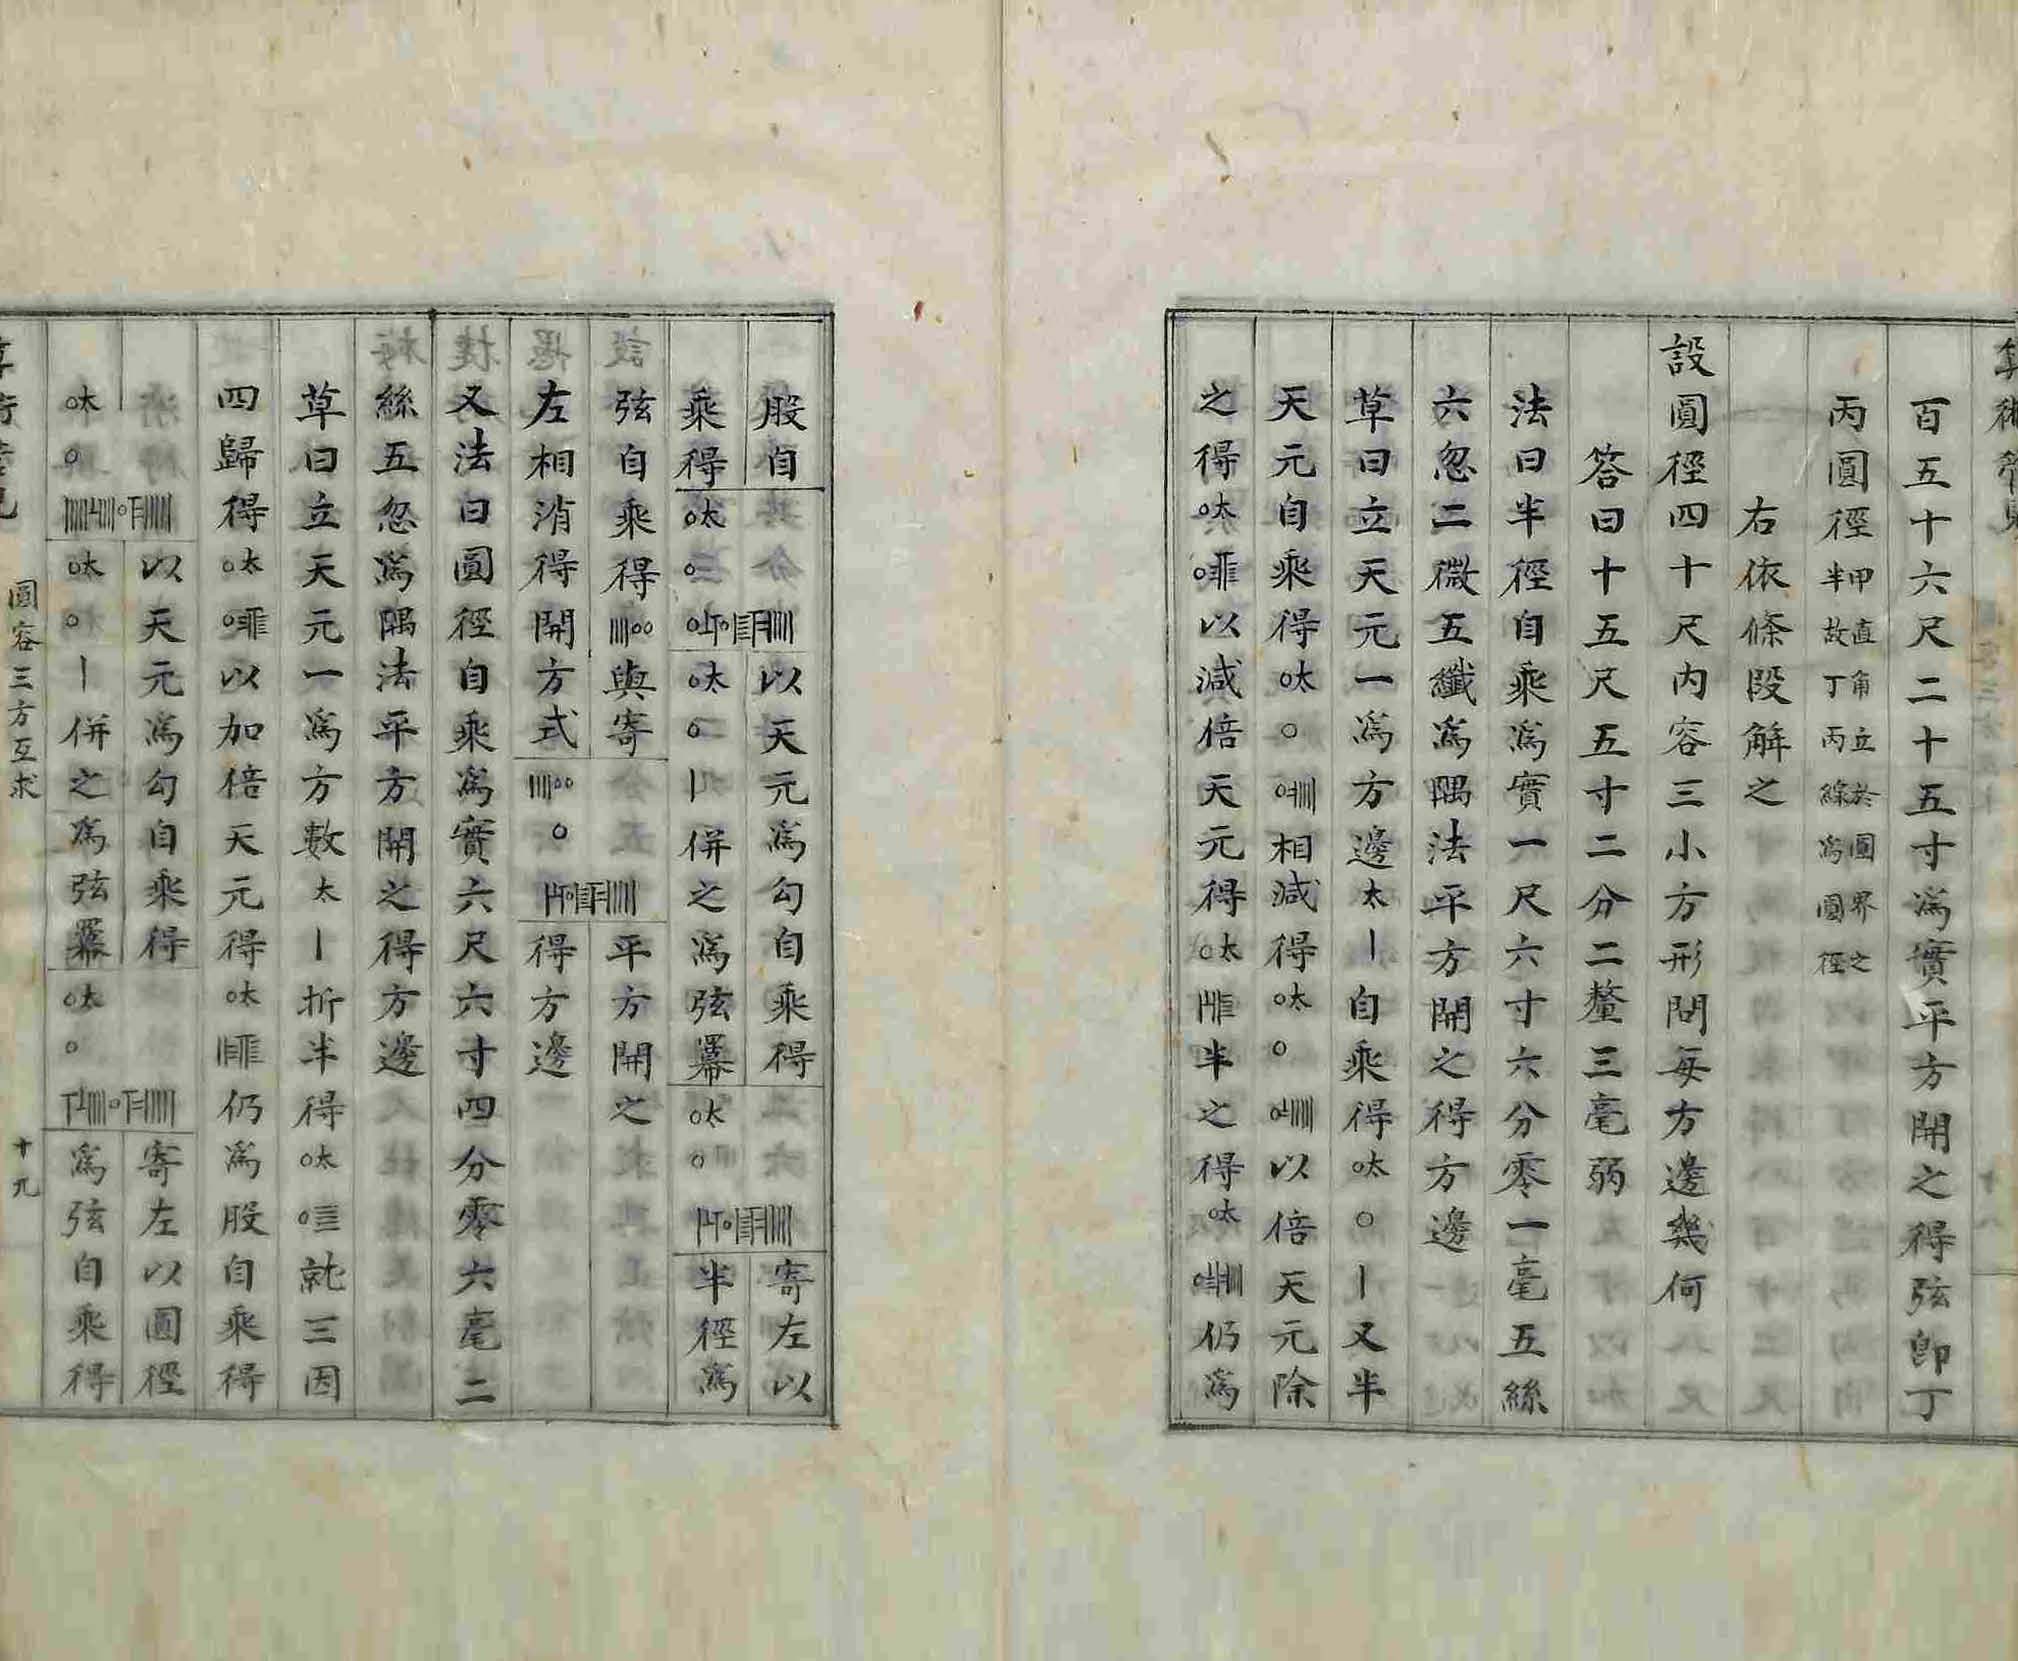 百五十六尺二十五寸爲實平方開之得弦卽丁
丙圓徑甲直角立於圓界之
半故丁丙線爲圓徑
右依條段解之
設圓徑四十尺內容三小方形問每方邊幾何
答曰十五尺五寸二分二釐三毫弱
法曰半徑自乘爲實一尺六寸六分零一毫五絲
六忽二微五纖爲隅法平方開之得方邊
草曰立天元一爲方邊太〡自乘得○太○〡又半
天元自乘得○太○相減得○太○以倍天元除
之得○太以減倍天元得○太半之得○太仍爲
股自
乘得○太○以天元爲勾自乘得
○太○〡併之爲弦冪○太○寄左以
半徑爲
弦自乘得〣○○與寄
左相消得開方式〣○○○平方開之
得方邊
又法曰圓徑自乘爲實六尺六寸四分零六毫二
絲五忽爲隅法平方開之得方邊
草曰立天元一爲方數太〡折半得○太就三因
四歸得○太以加倍天元得○太仍爲股自乘得
○太○以天元爲勾自乘得
○太○〡併之爲弦冪○太○寄左以圓徑
爲弦自乘得
圓容三方互求
十九